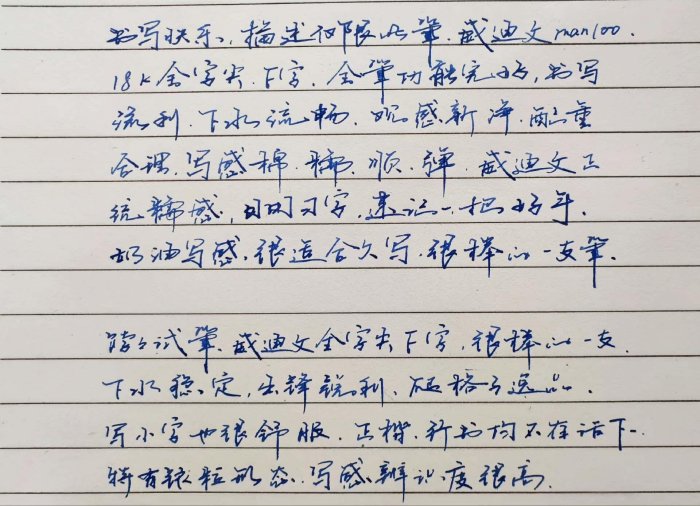 书写快乐,描述仅限此筆.威迪文man100.
18K金字尖.F字.全筆功能完好,书写
流利.下水流畅.观感新净.配重
合理.写感棉.糯.顺.弹.威迪文正
统糯感,日明习字,速记一把好手.
奶油写感.很适合久写.很棒的一支筆.
随手试筆.威迪文全字尖F字.很棒的一支
下水稳定,出锋锐利.砝格子逸品.
写小字也很舒服.正楷.行书均不在话下.
特有铱粒形态.写感辨识度很高.